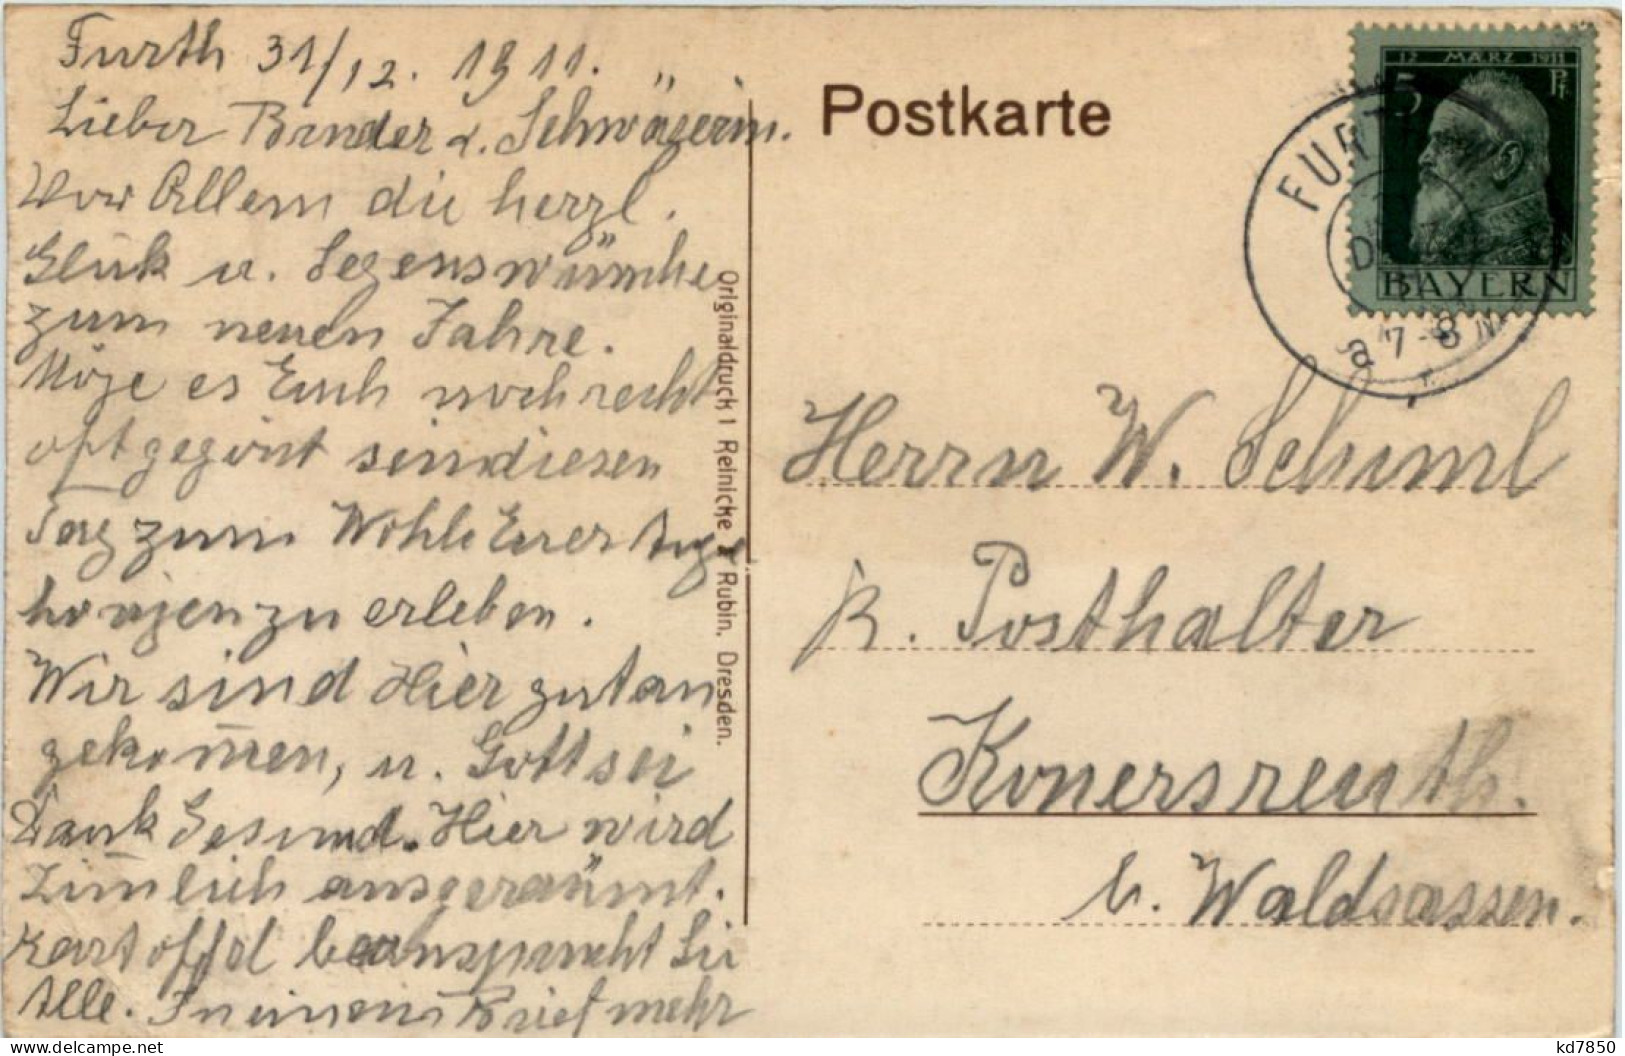 Furth 31/12. 1911.
Lieber Bruder u. Schwägerin.
Vor Allem die herzl.
Glück u. Segenswünsche
zum neuen Jahre.
Möge es Euch noch recht
oft gegönt sein diesen
Tag zum Wohle Eurer Ange
hörigen zu erleben.
Wir sind Hier gut an
gekom̄en, u. Gott sei
Dank Gesund. Hier wird
Zim̄lich ausgeräumt.
Kartoffel beansprucht Sie
Alle. In einem Brief mehr
Originaldruck! Reinicke & Rubin, Dresden.
Postkarte
12 MÄRZ 1911
5 Pf
BAYERN
FURTH
a 7-8 N
Herrn W. Schiml
k. Posthalter
Konersreuth.
b. Waldsassen.
kd7850